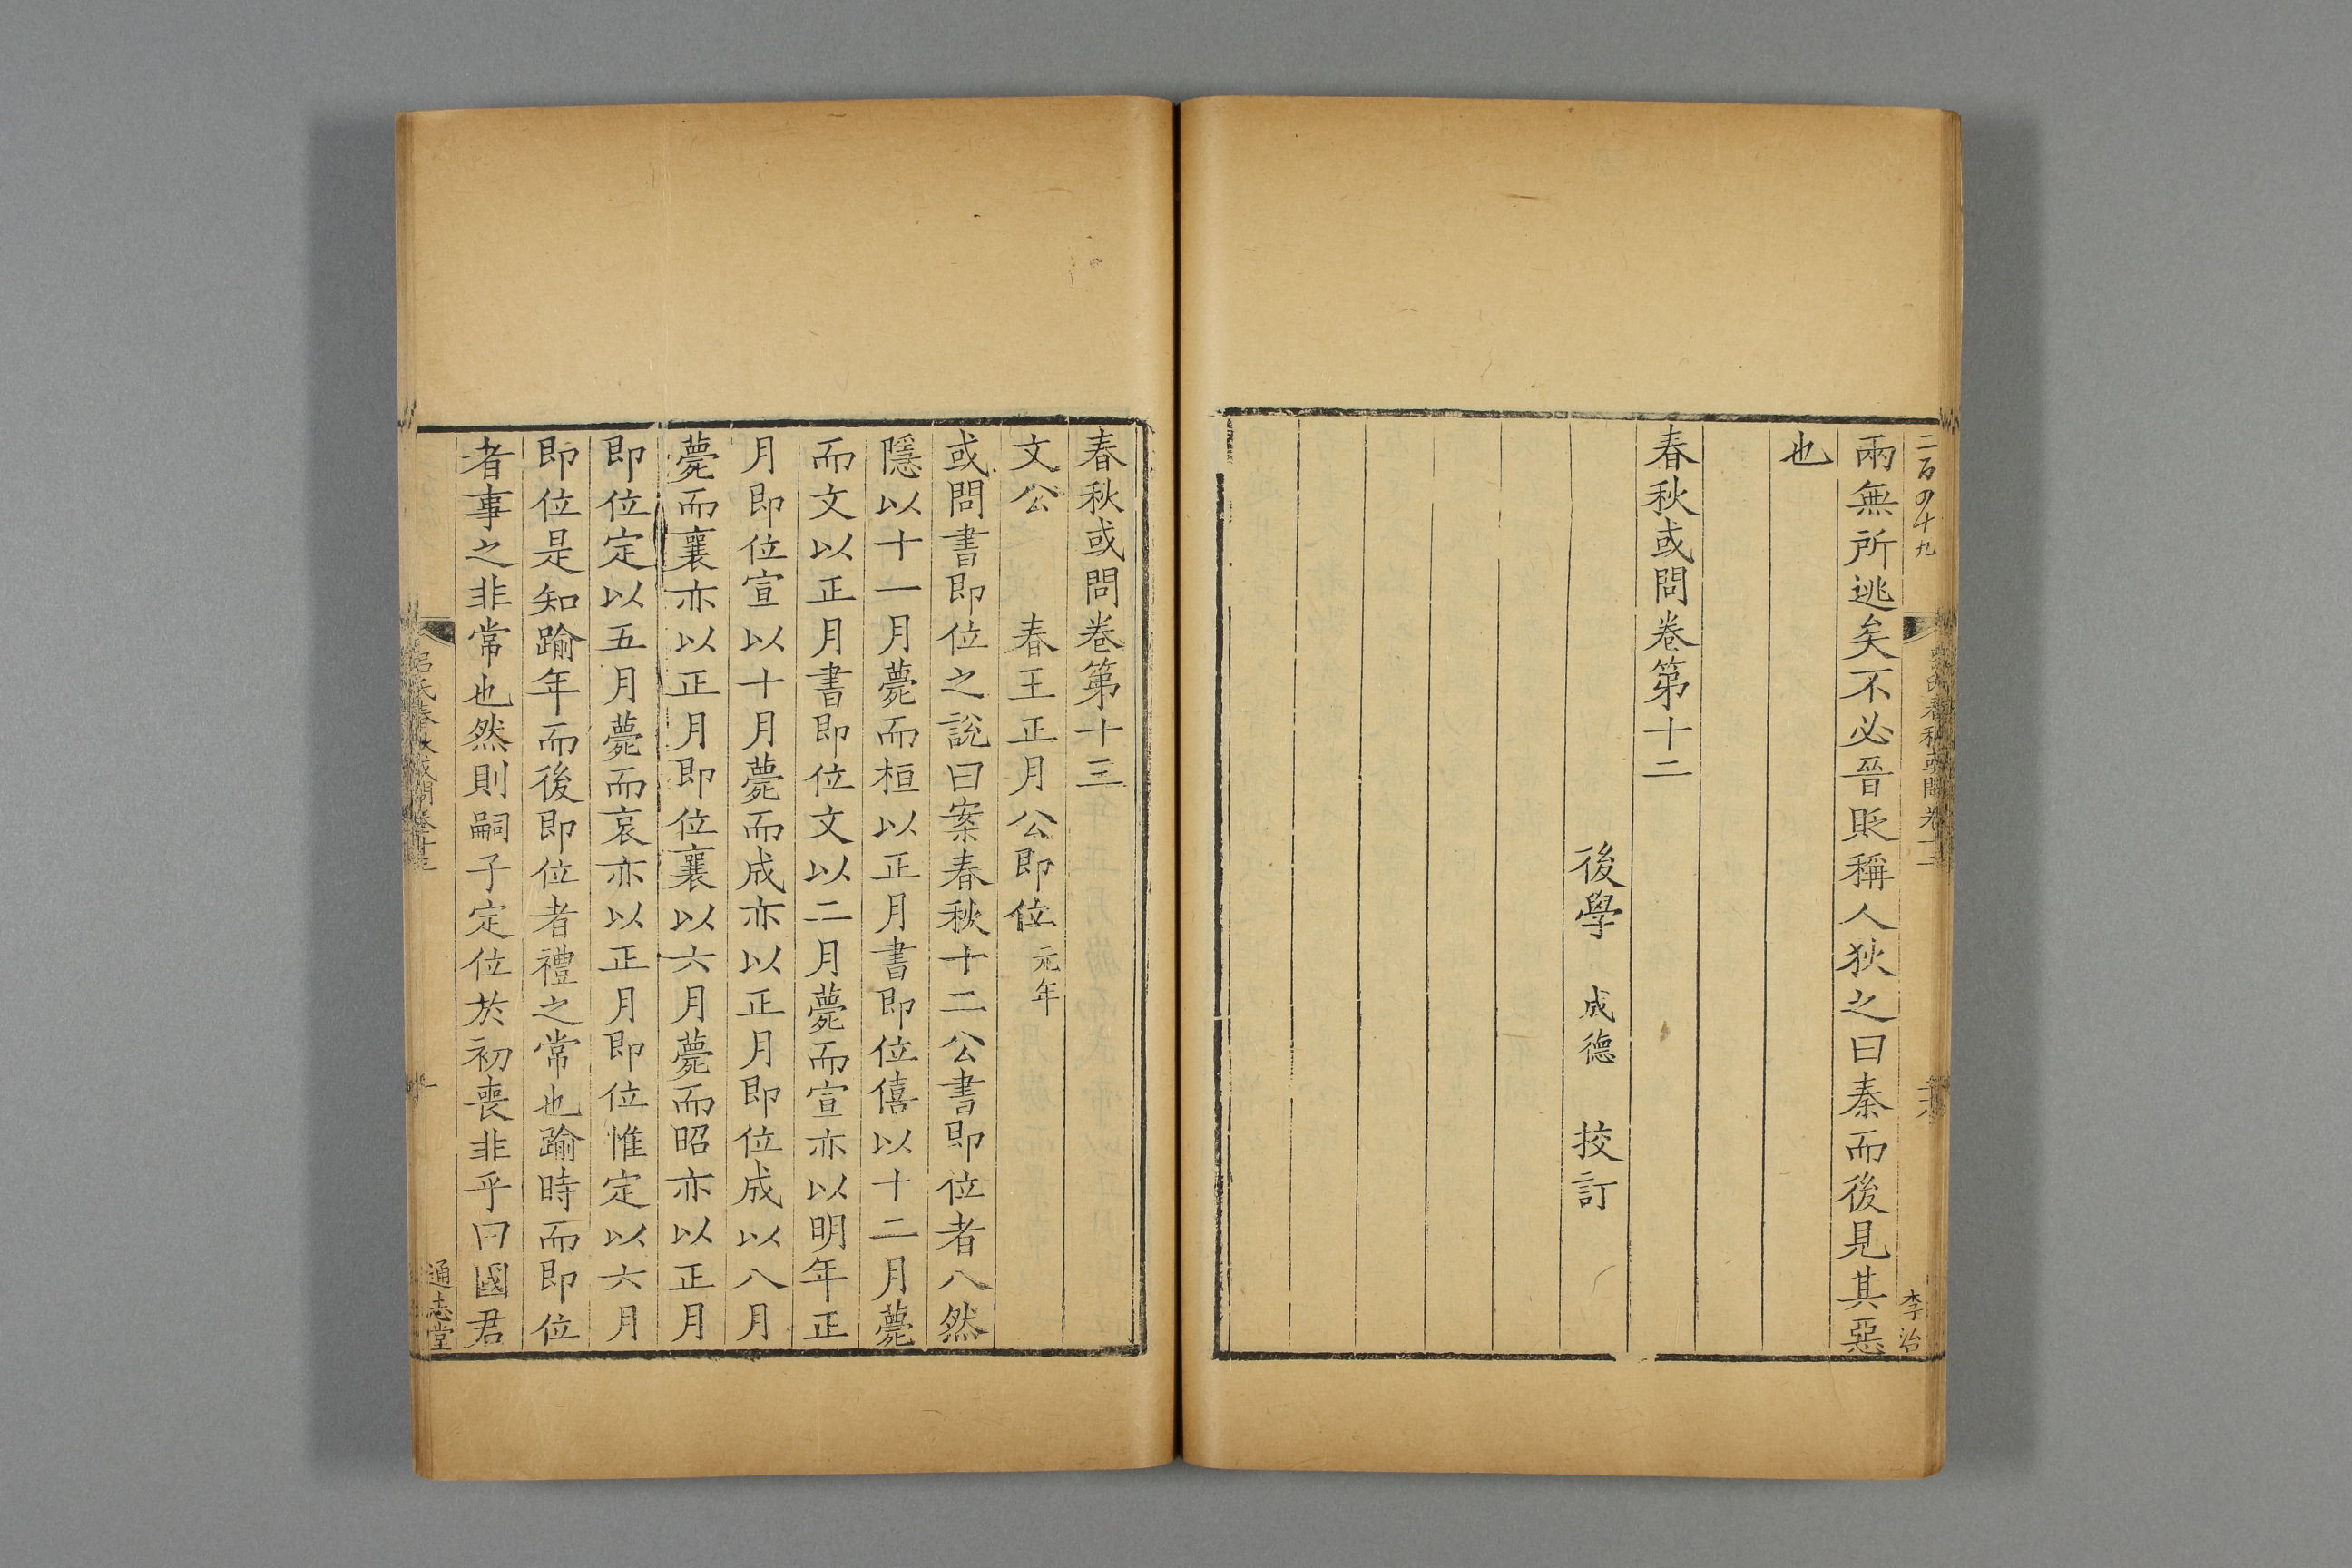 二百四十九
李治
兩無所逃矣不必晉貶稱人狄之曰秦而後見其惡
也
春秋或問卷第十二
後學 成德 挍訂
春秋或問卷第十三
文公 春王正月公即位元年
或問書即位之說曰案春秋十二公書即位者八然
隱以十一月薨而桓以正月書即位僖以十二月薨
而文以正月書即位文以二月薨而宣亦以明年正
月即位宣以十月薨而成亦以正月即位成以八月
薨而襄亦以正月即位襄以六月薨而昭亦以正月
即位定以五月薨而哀亦以正月即位惟定以六月
即位是知踰年而後即位者禮之常也踰時而即位
者事之非常也然則嗣子定位於初喪非乎曰國君
呂氏春秋或問卷十三
通志堂